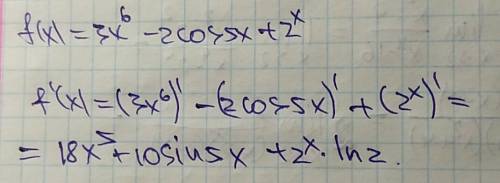 f(x) = 3x⁶ - 2cos5x + 2ˣ
f'(x) = (3x⁶)' - (2cos5x)' + (2ˣ)' =
= 18x⁵ + 10sin5x + 2ˣ · ln2.